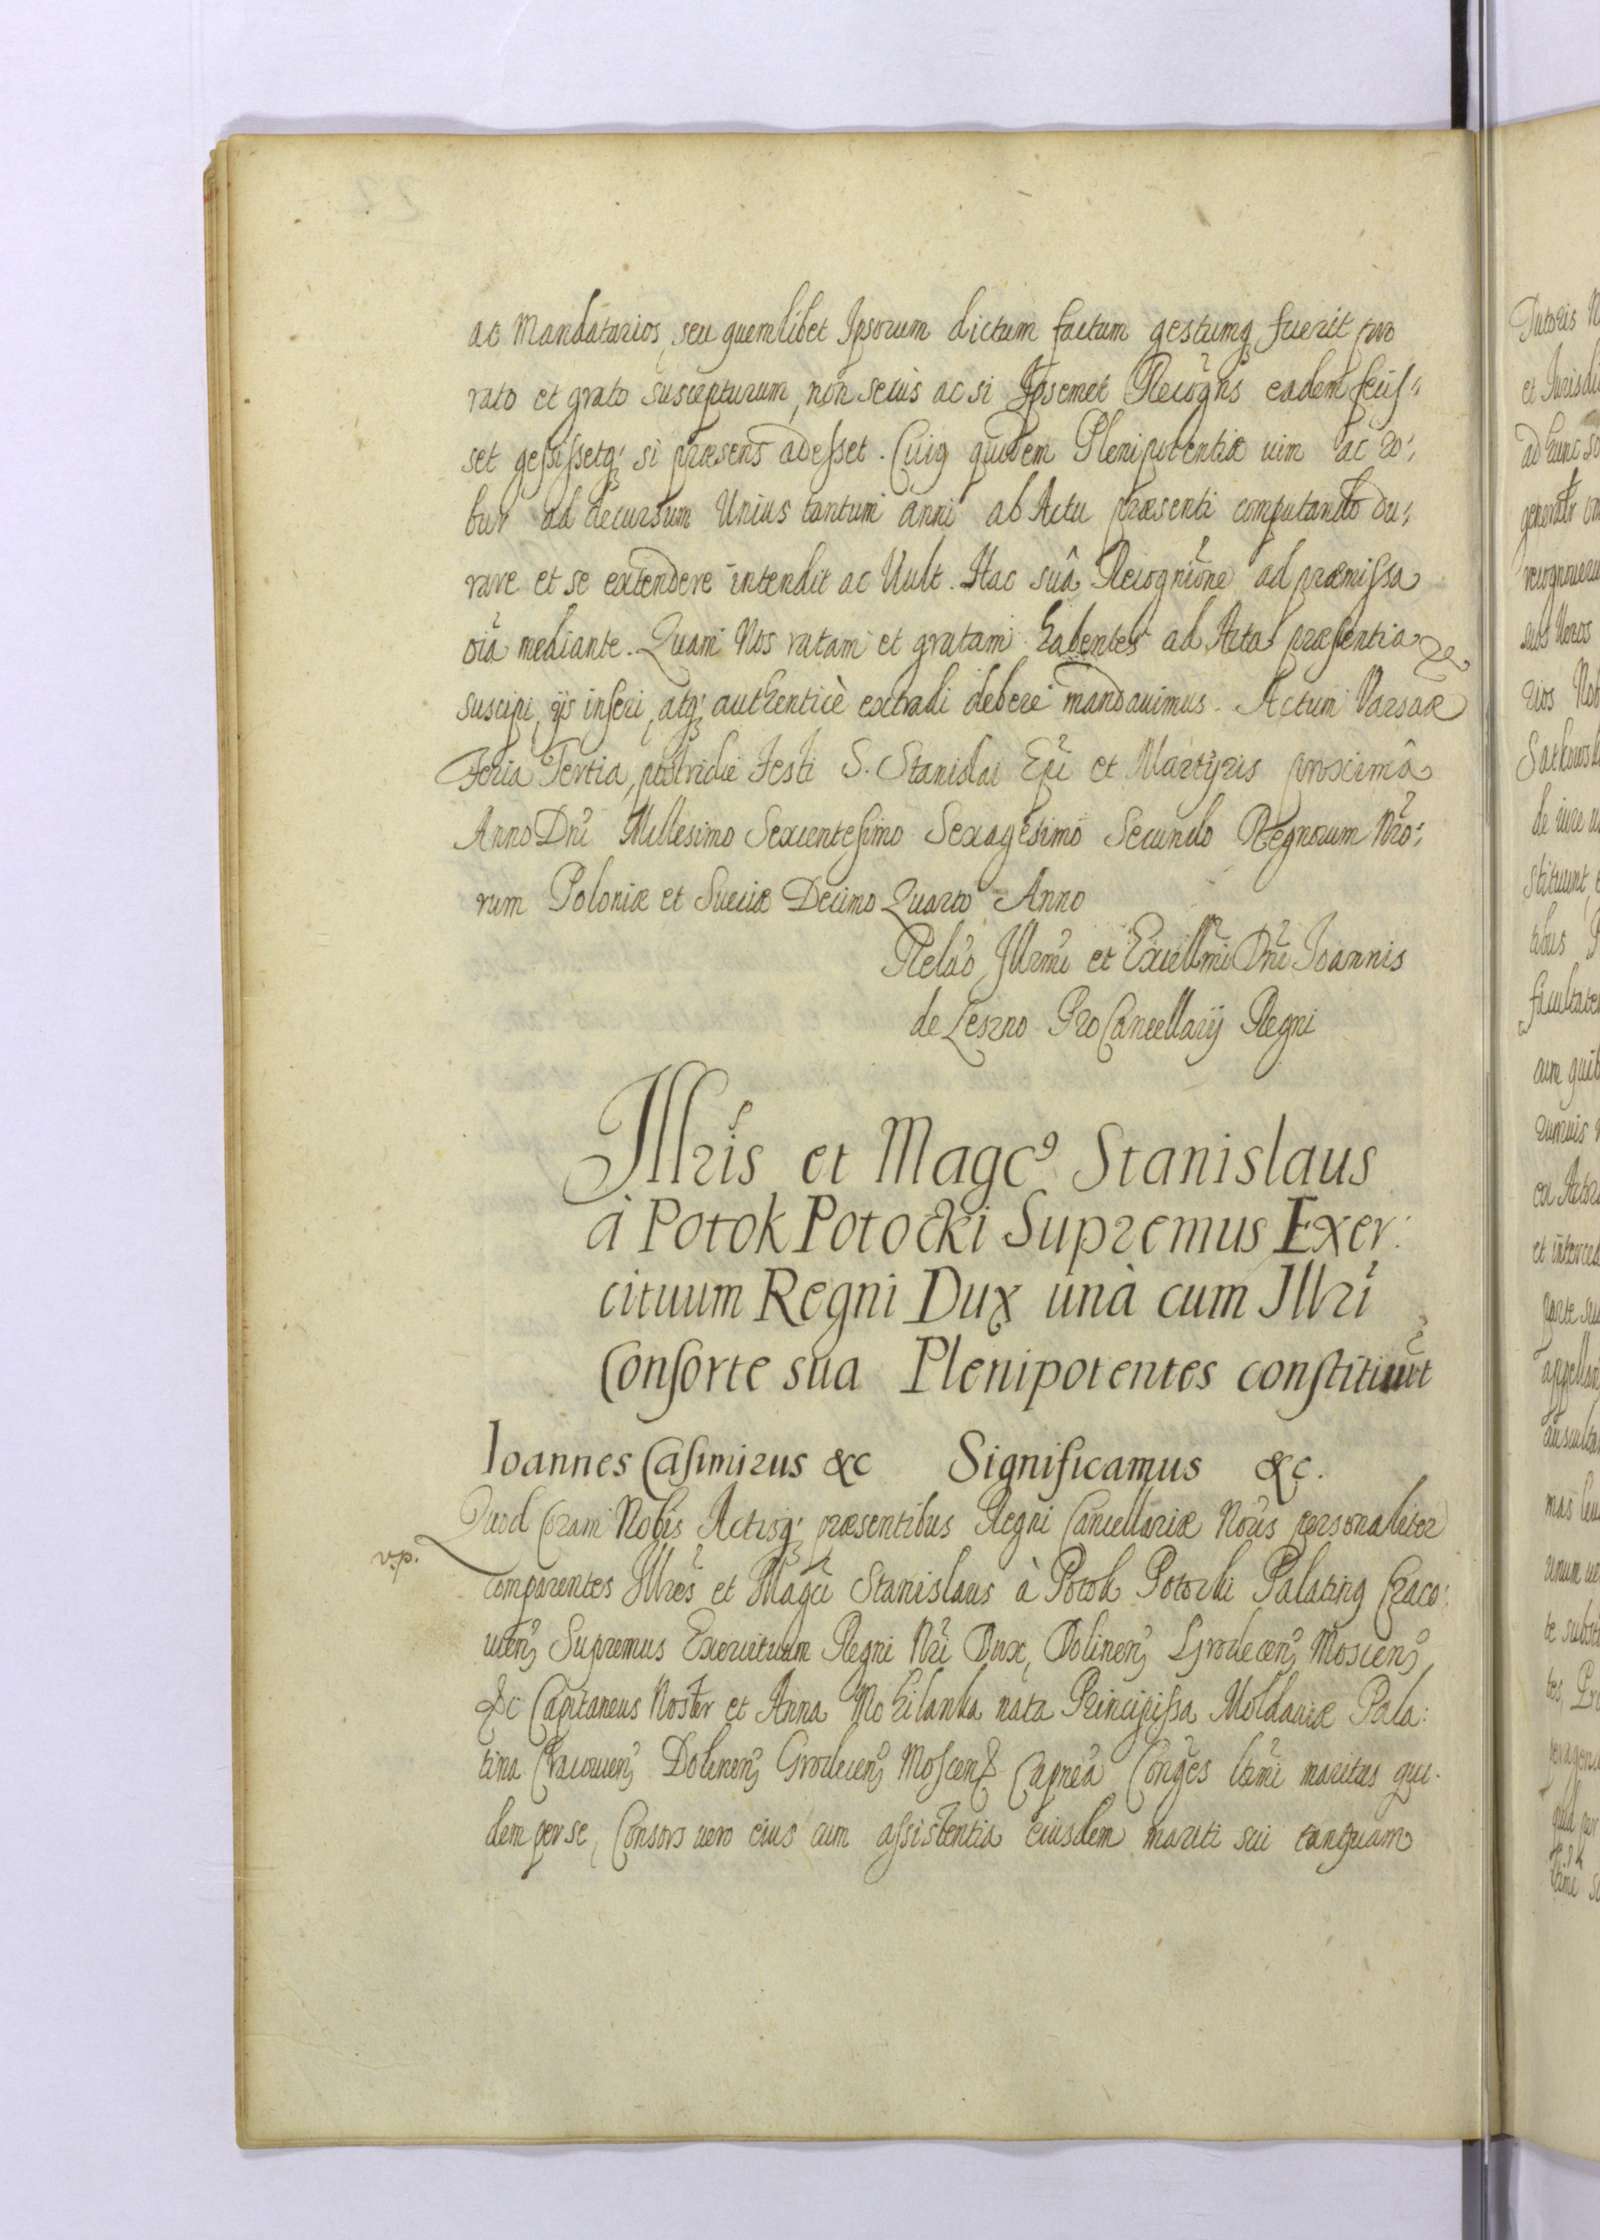 ac Mandatarios, seu quemlibet Ipsorum dictum factum gestumq fuerit pro
rato et grato suscepturum, non secus ac si Ipsemet Recogns eadem fecis-
set gessissetq si præsens adesset. Cuiq quidem Plenipotentiæ vim ac ro-
bur ad decursum Unius tantum anni ab Actu præsenti computando du-
rare et se extendere intendit ac Vult. Hac suâ Recognitione ad præmissa
oia mediante. Quam Nos ratam et gratam habentes ad Acta præsentia
suscipi, ijs inseri, atq authenticè extradi debere mandavimus. Actum Varsaæ
Feria Tertia, postridie Festi S. Stanislai Epi et Martyris proximâ
Anno Dni Millesimo Sexcentesimo Sexagesimo Secundo Regnorum Nro-
rum Poloniæ et Sueciæ Decimo Quarto Anno
Relao Illrmi et Excellmi Dni Ioannis
de Leszno Pro Cancellarij Regni
Illris et Magcꝰ Stanislaus
à Potok Potocki Supremus Exer-
cituum Regni Dux unà cum Illri
Consorte sua Plenipotentes constituut
Ioannes Casimirus &c Significamus &c.
Quod Coram Nobis Actisq præsentibus Regni Cancellariæ Nois personaliter
comparentes Illres et Magci Stanislaus à Potok Potocki Palatinq Craco-
vien Supremus Exercituum Regni Nri Dux, Dolinen Grodecen Moscen
&c Capitaneus Noster et Anna Mohilanka nata Principissa Moldaviæ Pala-
tina Cracovien Dolinen Grodecen Moscen & Capnea Conges ltimi maritus qui-
dem per se, Consors vero eius cum assistentia eiusdem mariti sui tanquam